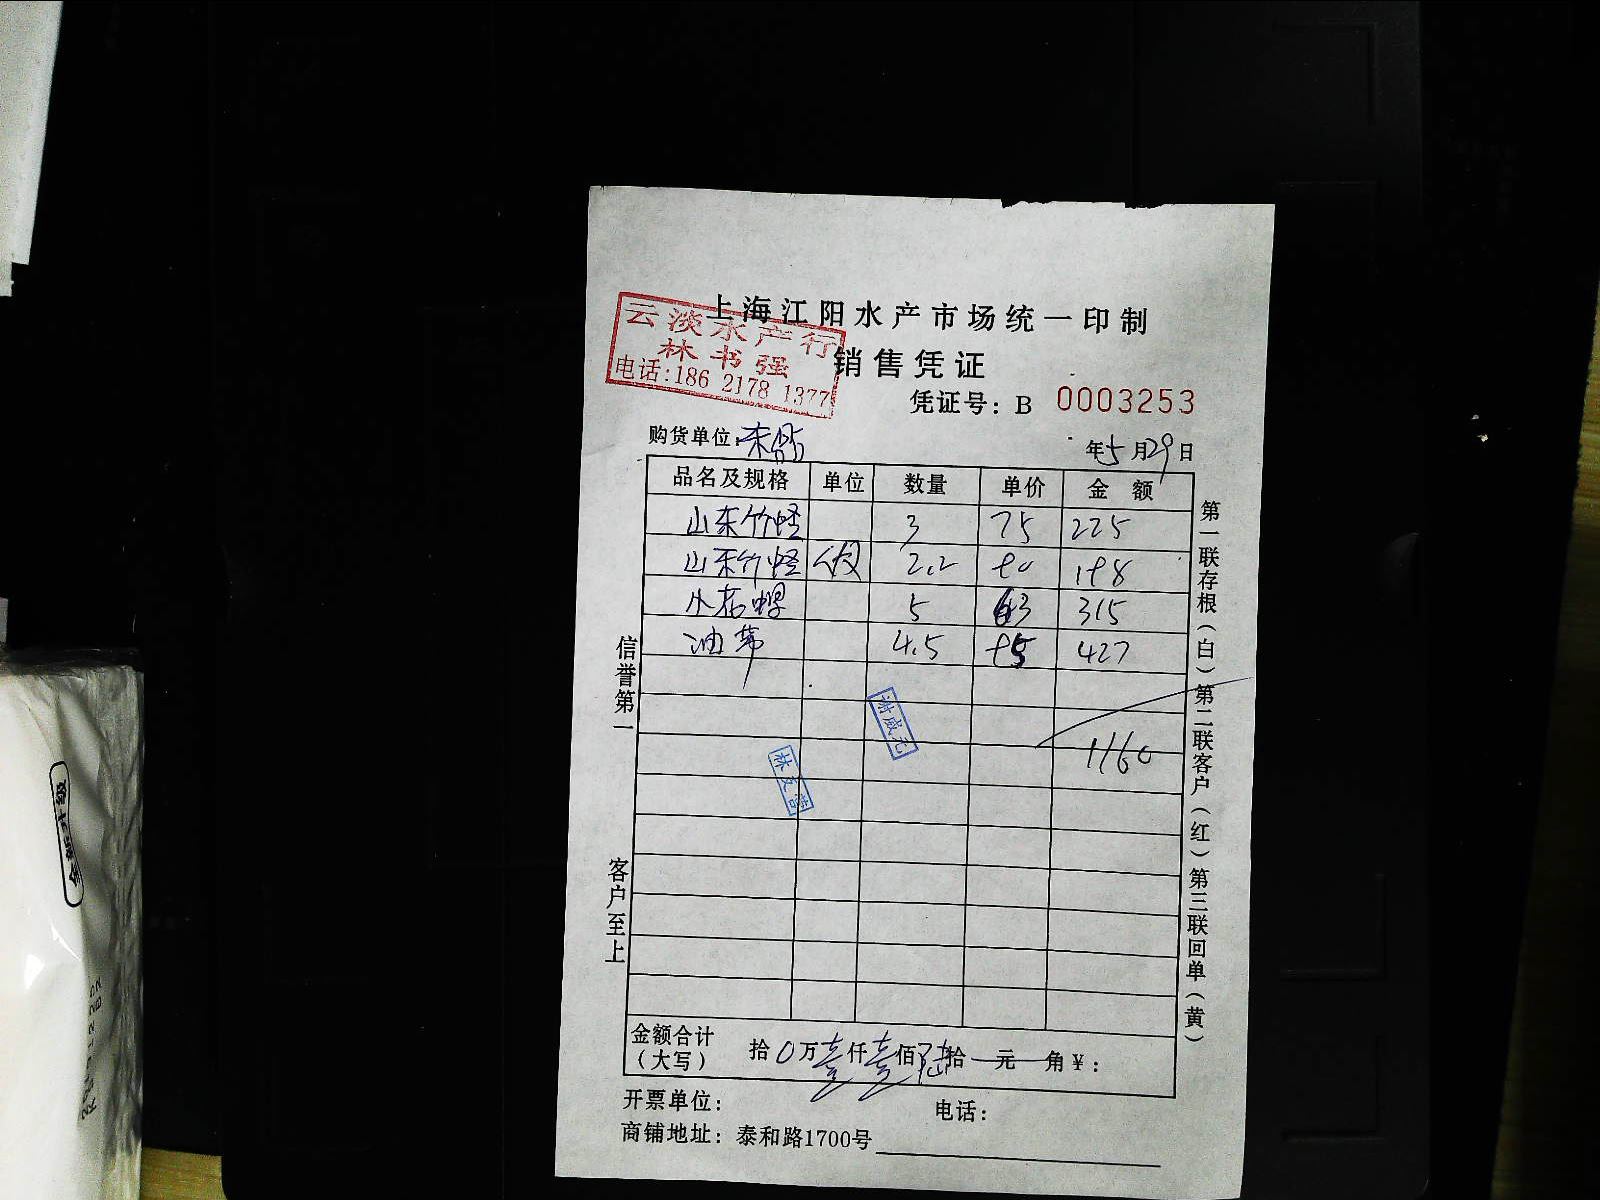 上海江阳水产市场统一印制
云淡水产行
林书强
电话:186 2178 1377
销售凭证
凭证号: B 0003253
购货单位:
年5月29日
品名及规格 单位 数量 单价 金额
山东竹蛏 3 75 225
山东竹蛏 2.2 90 198
小花螺 5 63 315
油蒂 4.5 95 427
谢成元
1160
金额合计
(大写) 拾0万壹仟壹佰陆拾 元 角 ¥:
开票单位: 电话:
商铺地址: 泰和路1700号
信誉第一
客户至上
第一联存根(白)第二联客户(红)第三联回单(黄)